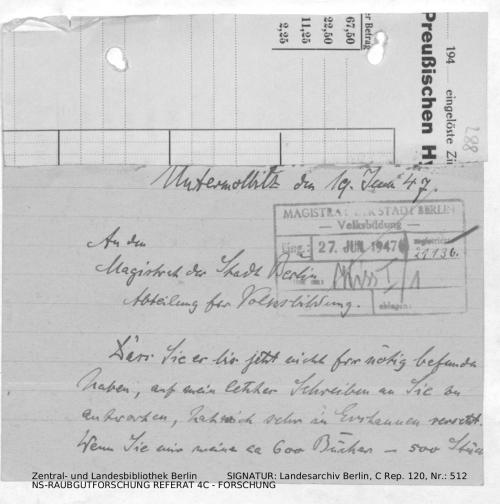 r Betrag
67,50
22,50
11,25
2,25
194 eingelöste Zi
Preußischen H
288
Untermolbitz den 19. Juni 47.
MAGISTRAT DER STADT BERLIN
— Volksbildung —
Eing.: 27. JUN. 1947
21136.
ablegen:
An den
Magistrat der Stadt Berlin
Abteilung für Volksbildung.
Dass Sie es bis jetzt nicht für nötig befunden
haben, auf mein letztes Schreiben an Sie zu
antworten, hat mich sehr in Erstaunen versetzt.
Wenn Sie mir meine ca 600 Bücher – 500 Stück
Zentral- und Landesbibliothek Berlin SIGNATUR: Landesarchiv Berlin, C Rep. 120, Nr.: 512
NS-RAUBGUTFORSCHUNG REFERAT 4C - FORSCHUNG